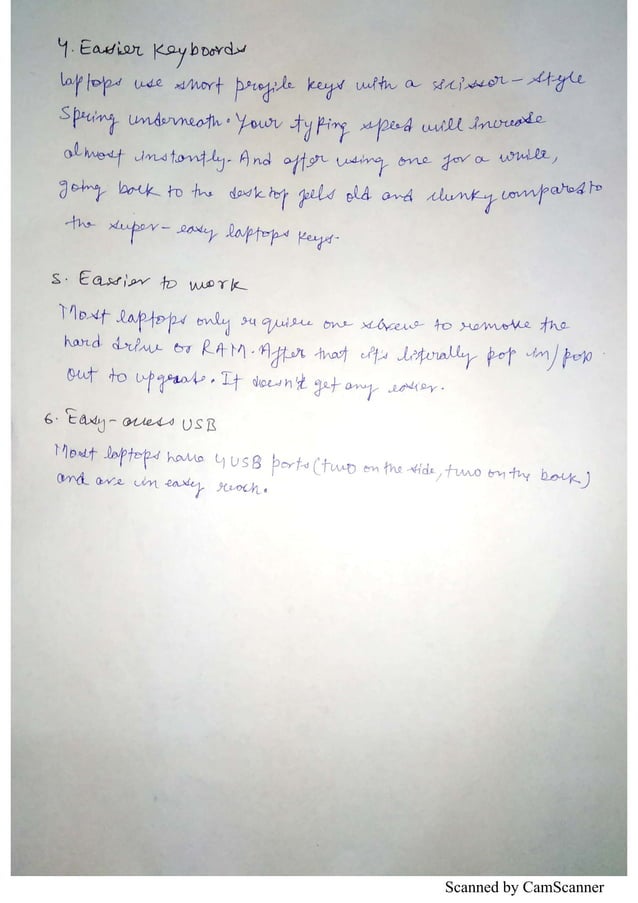 4. Easier Keyboards
laptops use short profile keys with a scissor-style
Spring underneath. Your typing speed will increase
almost instantly. And after using one for a while,
going back to the desktop feels old and clunky compared to
the super-easy laptops keys.
5. Easier to work
Most laptops only require one screw to remove the
hard drive or RAM. After that it's literally pop in/pop
out to upgrade. It doesn't get any easier.
6. Easy-access USB
Most laptops have 4 USB ports (two on the side, two on the back)
and are in easy reach.
Scanned by CamScanner